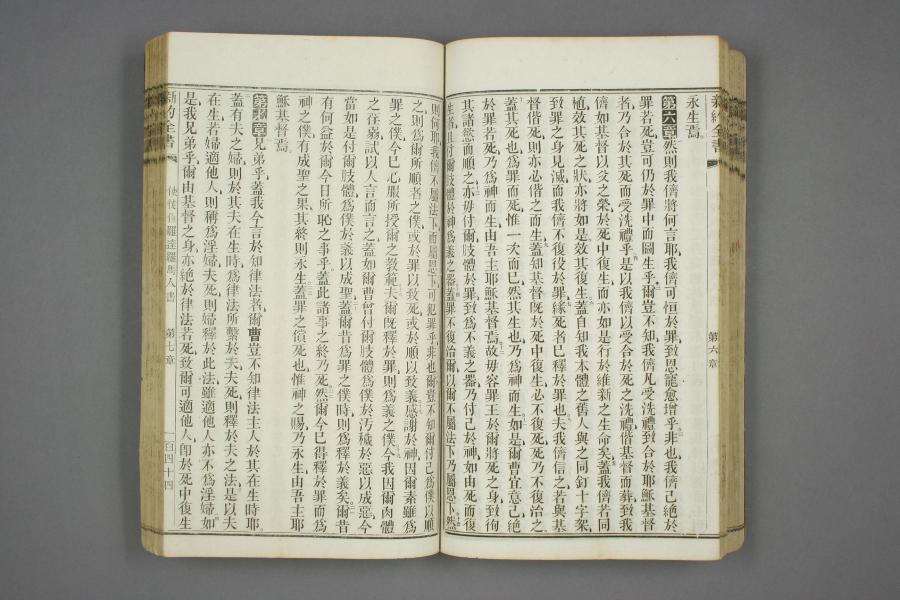 新約全書
第六章
永生焉
第六章然則我儕將何言耶我儕可恒於罪致恩寵愈增乎非也我儕已絕於
罪若死豈可仍於罪中而圖生乎爾豈不知我儕凡受洗禮致合於耶穌基督
者乃合於其死而受洗禮乎是以我儕以受合於死之洗禮偕基督而葬致我
儕如基督以父之榮於死中復生而亦如是行於維新之生命矣蓋我儕若同
植效其死之狀亦將如是效其復生蓋自知我本體之舊人與之同釘十字架
致罪之身見滅而我儕不復役於罪緣死者已釋於罪也夫我儕信之若與基
督偕死則亦必偕之而生蓋知基督旣於死中復生必不復死死乃不復治之
蓋其死也爲罪而死惟一次而已然其生也乃爲神而生如是爾曹宜意己絕
於罪者死乃爲神而生由吾主耶穌基督焉故毋容罪王於爾將死之身致徇
其諸慾而順之亦毋付爾肢體於罪致爲不義之器乃付己於神如由死而復
生者付爾肢體於神爲義之器蓋罪不復治爾以爾不屬法下乃屬恩下然
則何耶我儕不屬法下而屬恩下可犯罪乎非也爾豈不知爾付己爲僕以順
之則爲爾所順者之僕或於罪以致死或於順以致義感謝於神因爾素雖爲
罪之僕今已心服所授爾之教範夫爾旣釋於罪則爲義之僕今我因爾肉體
之荏弱試以人言而言之蓋如爾曹曾付爾肢體爲僕於汚穢於惡以成惡今
當如是付爾肢體爲僕於義以成聖蓋爾昔爲罪之僕時則爲釋於義矣爾昔
有何益於爾今日所恥之事乎蓋此諸事之終乃死然爾今已得釋於罪而爲
神之僕有成聖之果其終則永生蓋罪之償死也惟神之賜乃永生由吾主耶
穌基督焉
第七章兄弟乎蓋我今言於知律法者爾曹豈不知律法主人於其在生時耶
蓋有夫之婦則於其夫在生時爲律法所繫於夫夫死則釋於夫之法是以夫
在生若婦適他人則稱爲淫婦夫死則婦釋於此法雖適他人亦不爲淫婦如
是我兄弟乎爾由基督之身亦絕於律法若死致爾可適他人卽於死中復生
新約全書
使徒保羅達羅馬人書
第七章
一百四十四